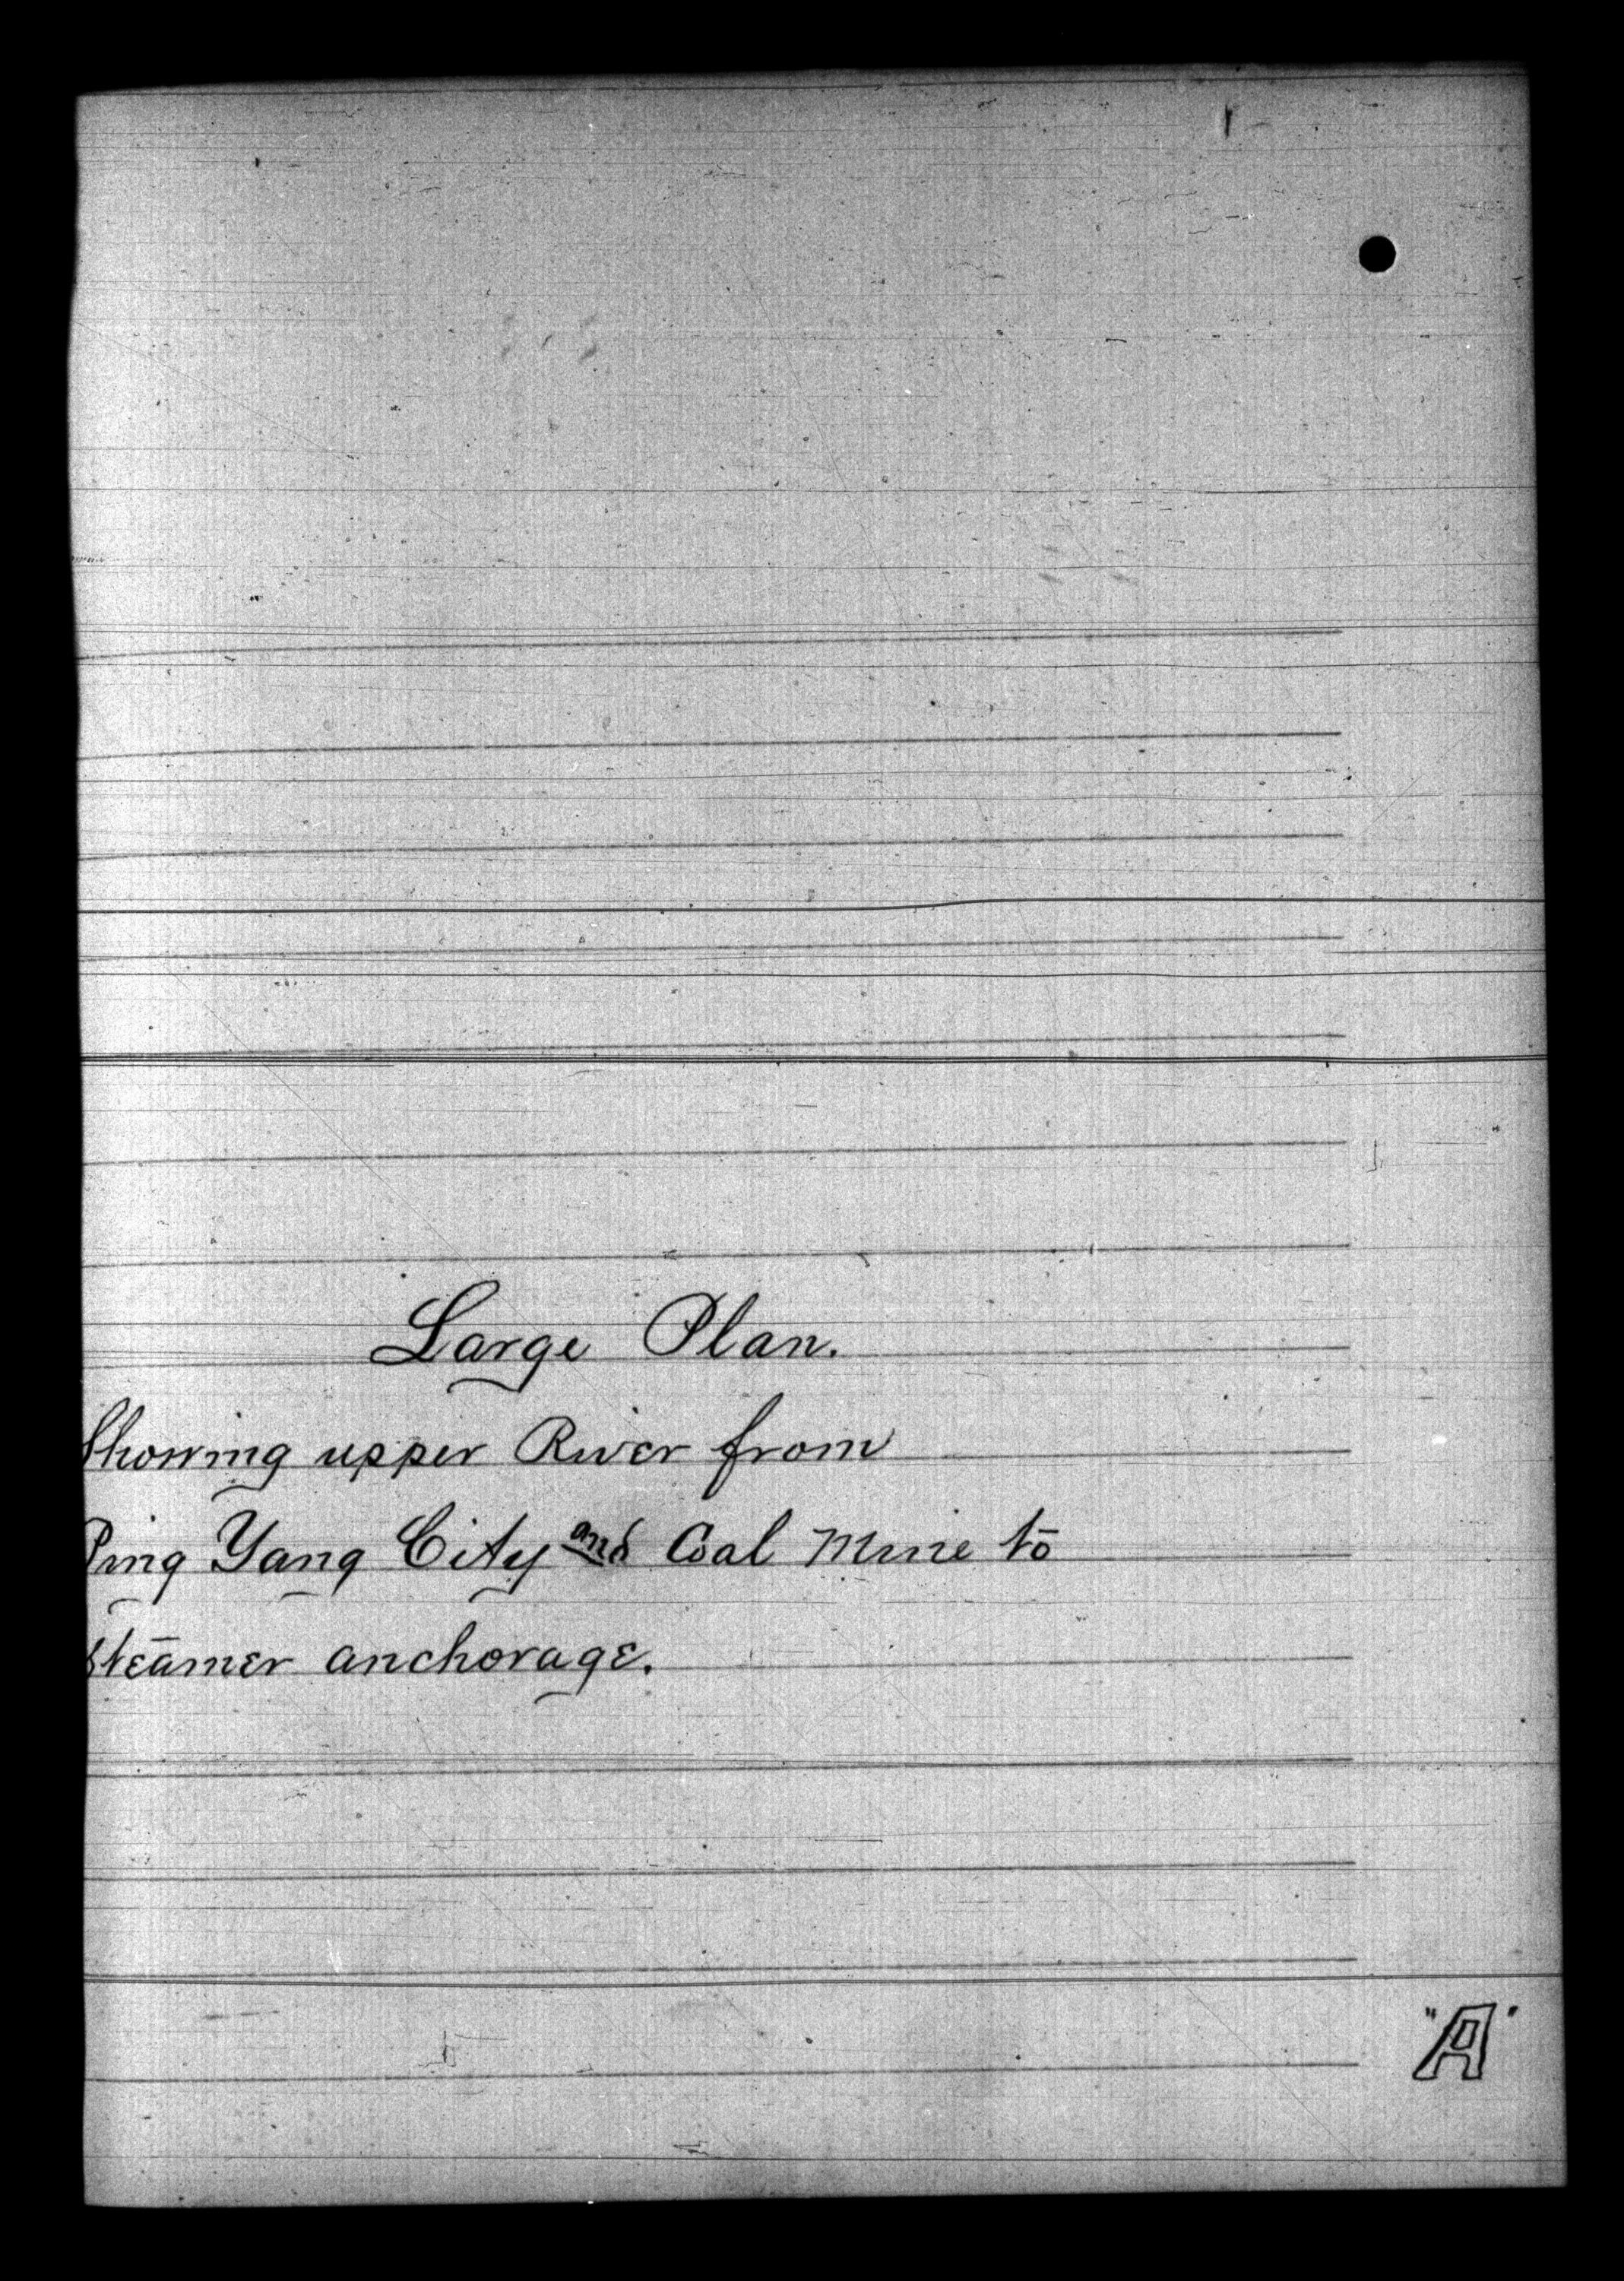 Large Plan.
Showing upper River from
Ping Yang City and Coal Mine to
steamer anchorage.
"A"